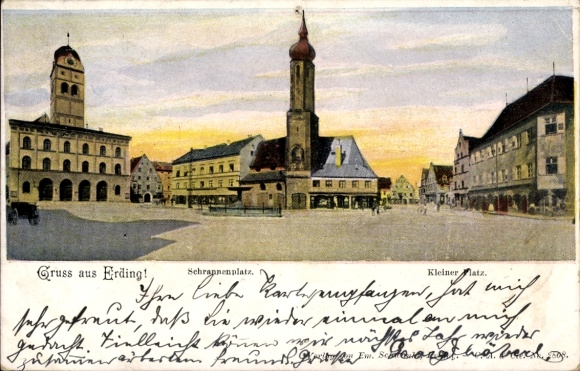 Gruss aus Erding! Schrannenplatz. Kleiner Platz.
Ihre liebe Karte empfangen, hat mich
sehr gefreut, daß Sie wieder einmal an mich
gedacht. Vielleicht können wir nächstes Jahr wieder
zusammen arbeiten freundl. Grüße